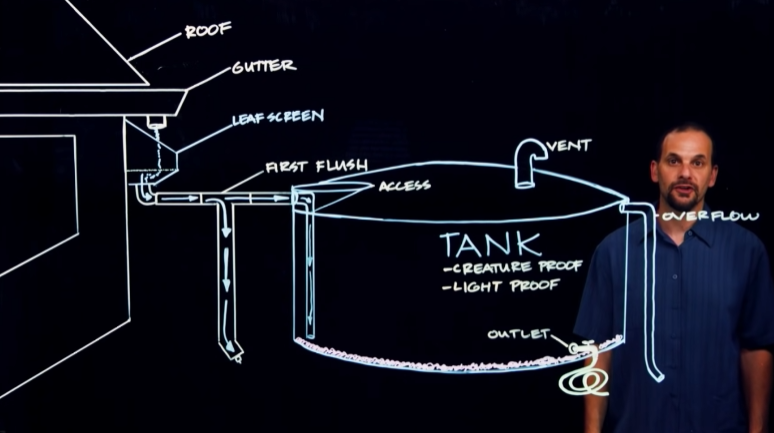 ROOF
GUTTER
LEAF SCREEN
FIRST FLUSH
VENT
ACCESS
OVERFLOW
TANK
-CREATURE PROOF
-LIGHT PROOF
OUTLET